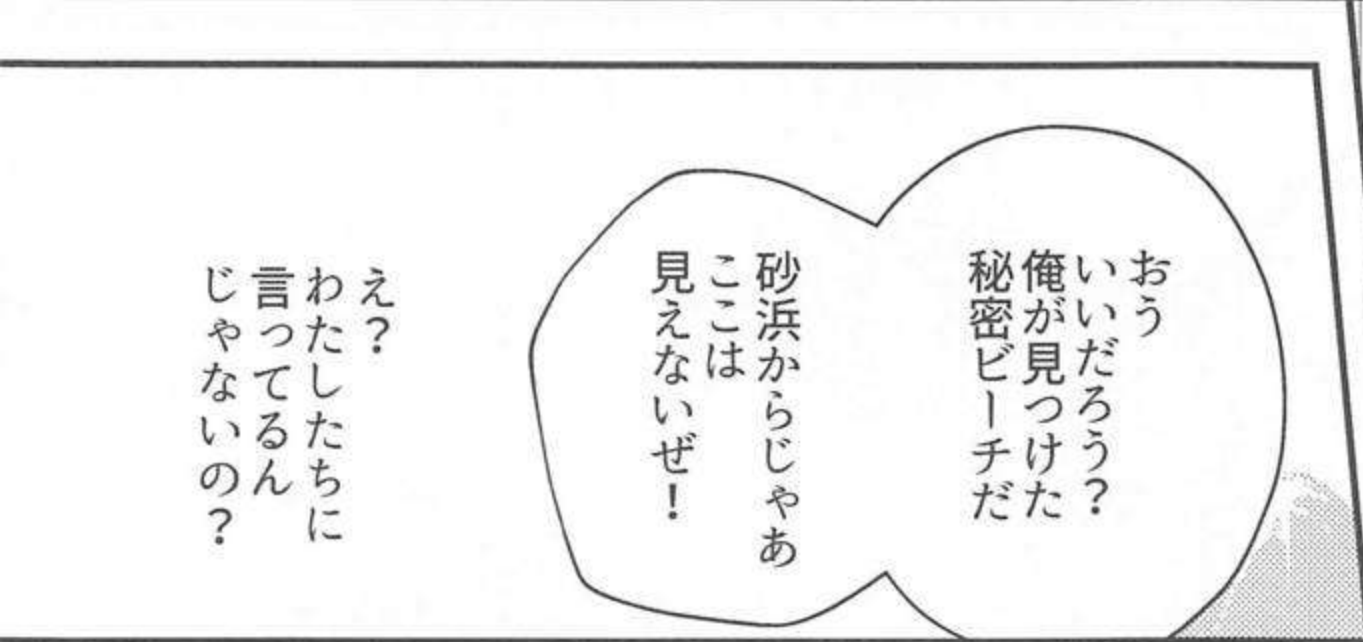 おう
いいだろう？
俺が見つけた
秘密ビーチだ
砂浜からじゃあ
ここは
見えないぜ！
え？
わたしたちに
言ってるん
じゃないの？